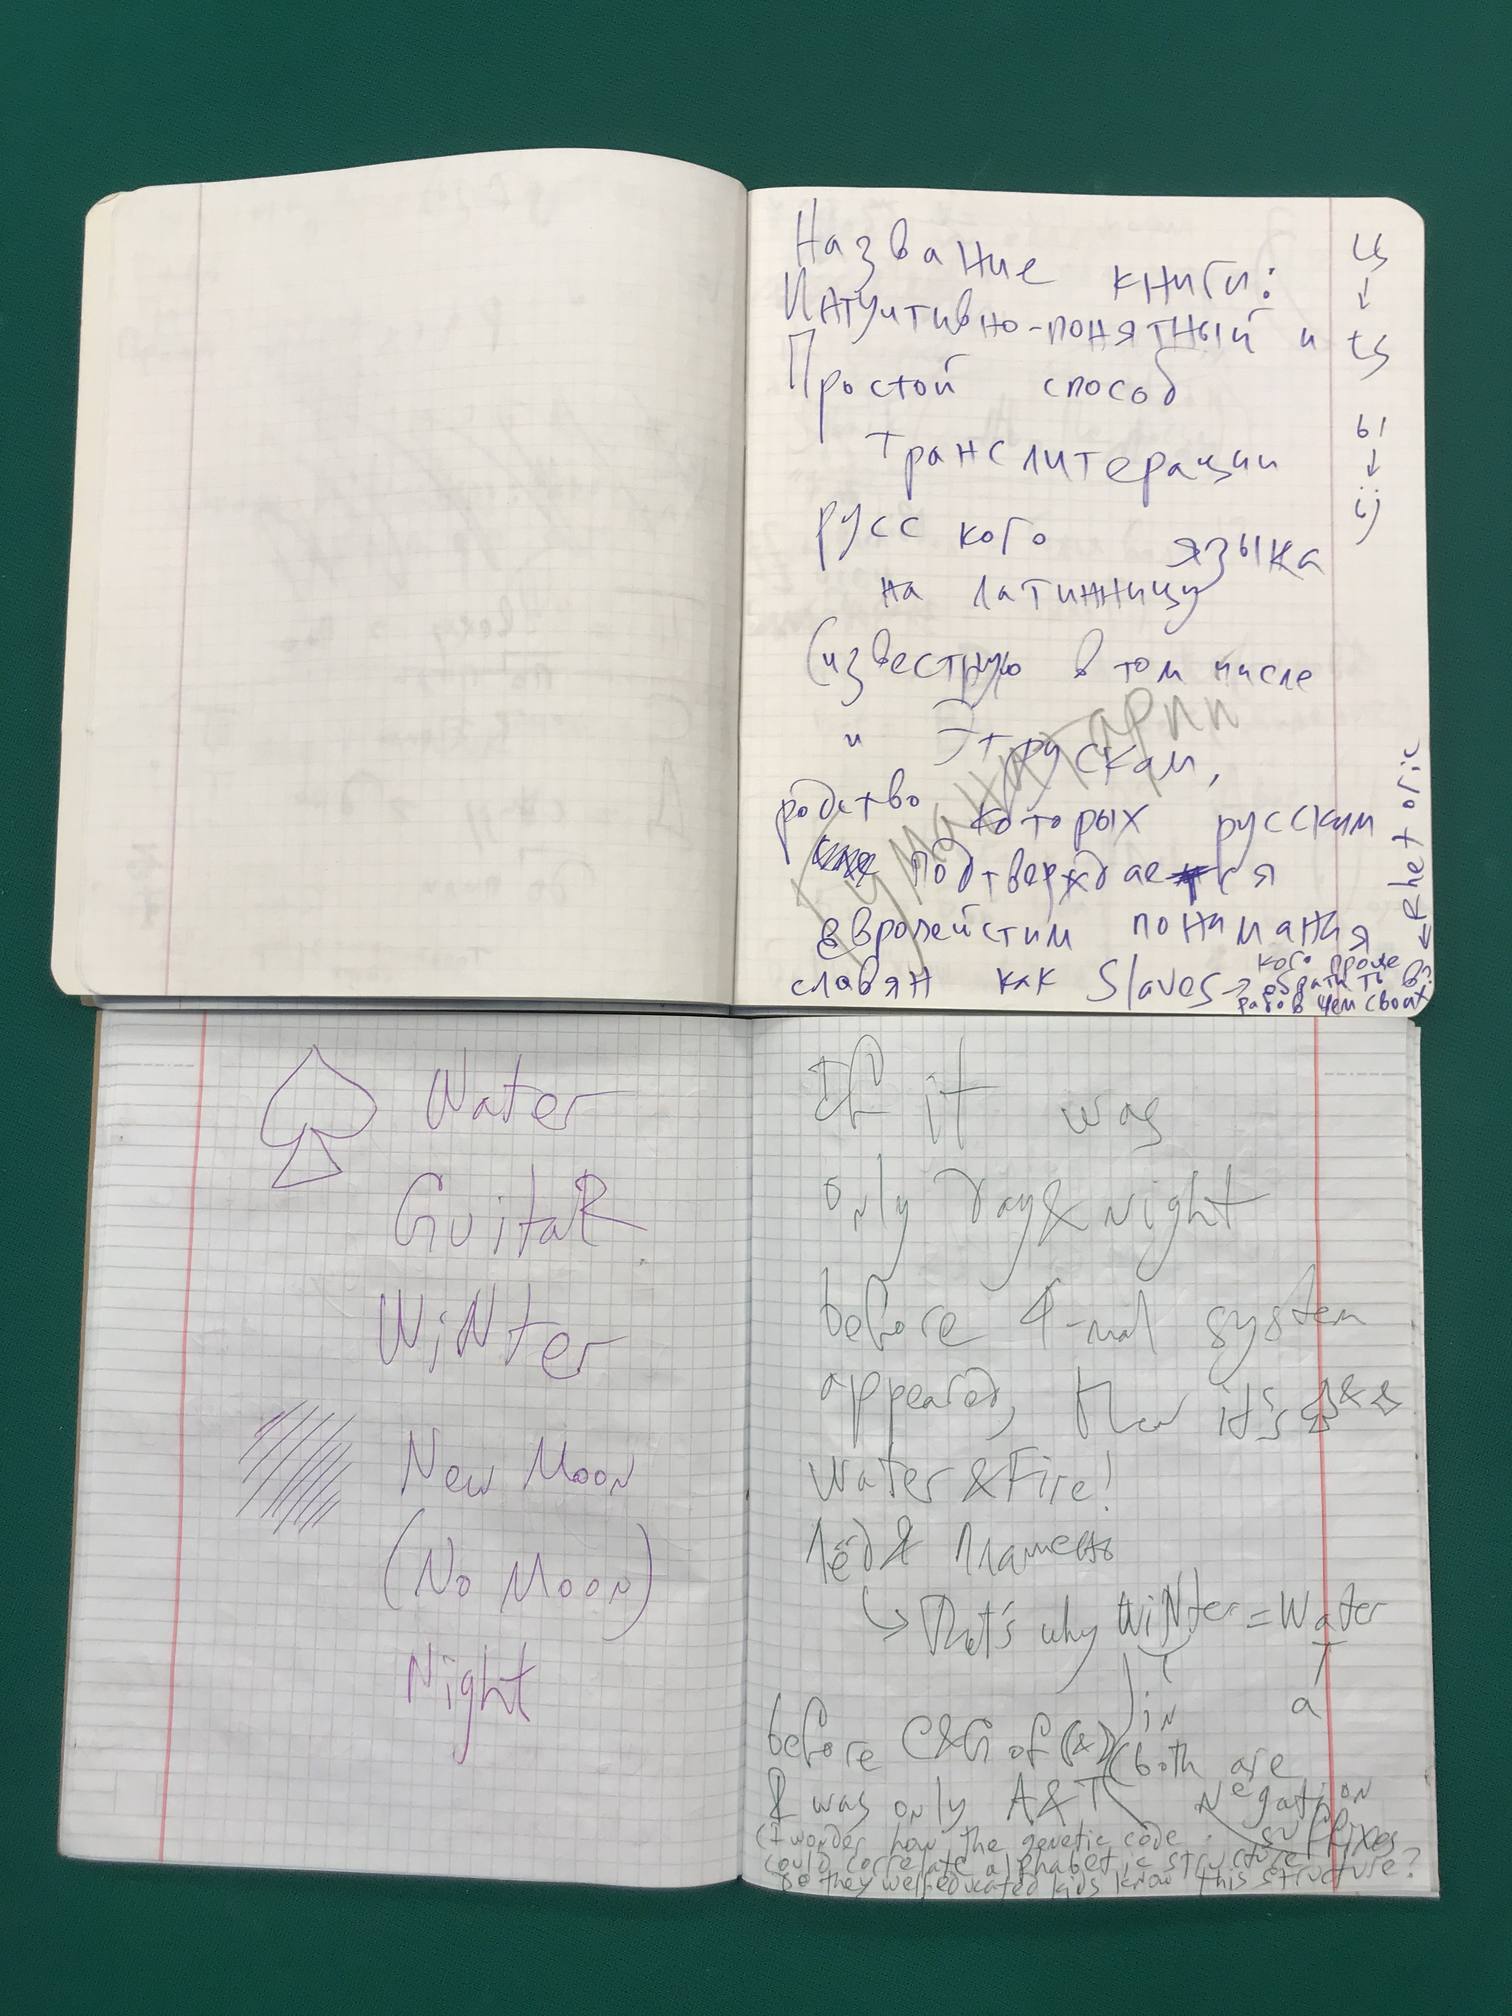 Название книги:
Интуитивно-понятный и
Простой способ
транслитерации
русского языка
на латинницу
(известную в том числе
и Этрускам,
родство которых русским
подтверждается
европейстим понимания
славян как Slaves →
кого проще
обратить в
рабов чем своих?
ц
↓
ts
ы
↓
ij
← Rhetoric
Гуманитарии
Water
GuitaR
WiNter
New Moon
(No Moon)
Night
If it was
only Day&Night
before 4-nal system
appeared, then it's ♠&♣
Water &Fire!
Лёд & пламень
↳ That's why WiNter = Water
in a
before C&G of (&) (both are
R was only A&T Negation
suffixes
(I wonder how the genetic code
could correlate alphabetic structure?
Do they welleducated kids know this structure?